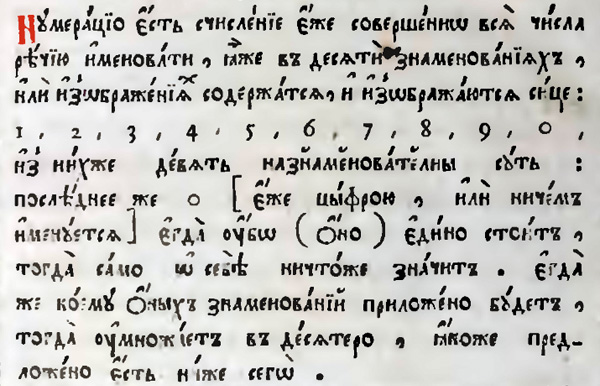 Нꙋмера́цїо є҆́сть счисле́нїе є҆́же соверше́ннѡ всѧ̀ чи́сла
рѣ́чїю и҆менова́ти , ꙗ҆̀же въ десѧтѝ знаменова́нїѧхъ ,
и҆лѝ и҆зѡбраже́нїѧхъ содержа́тсѧ , и҆ и҆зѡбража́ютсѧ си́це :
1 , 2 , 3 , 4 , 5 , 6 , 7 , 8 , 9 , 0 ,
и҆з̾ ни́хже де́вѧть назнаменова́тєлны сꙋ́ть :
послѣ́днее же 0 [ є҆́же цы́фрою , и҆лѝ ниче́мъ
и҆менꙋ́етсѧ ] є҆гда̀ ᲂу҆́бѡ ( ѻ҆́но ) є҆ди́но стои́тъ ,
тогда̀ са́мо ѡ҆ себѣ̀ ничто́же зна́читъ . є҆гда̀
же ко́емꙋ ѻ҆́ныхъ знаменова́нїй приложе́но бꙋ́детъ ,
тогда̀ ᲂу҆мно́жаетъ въ де́сѧтеро , ꙗ҆́коже пред-
ложе́но є҆́сть ни́же сегѡ̀ .